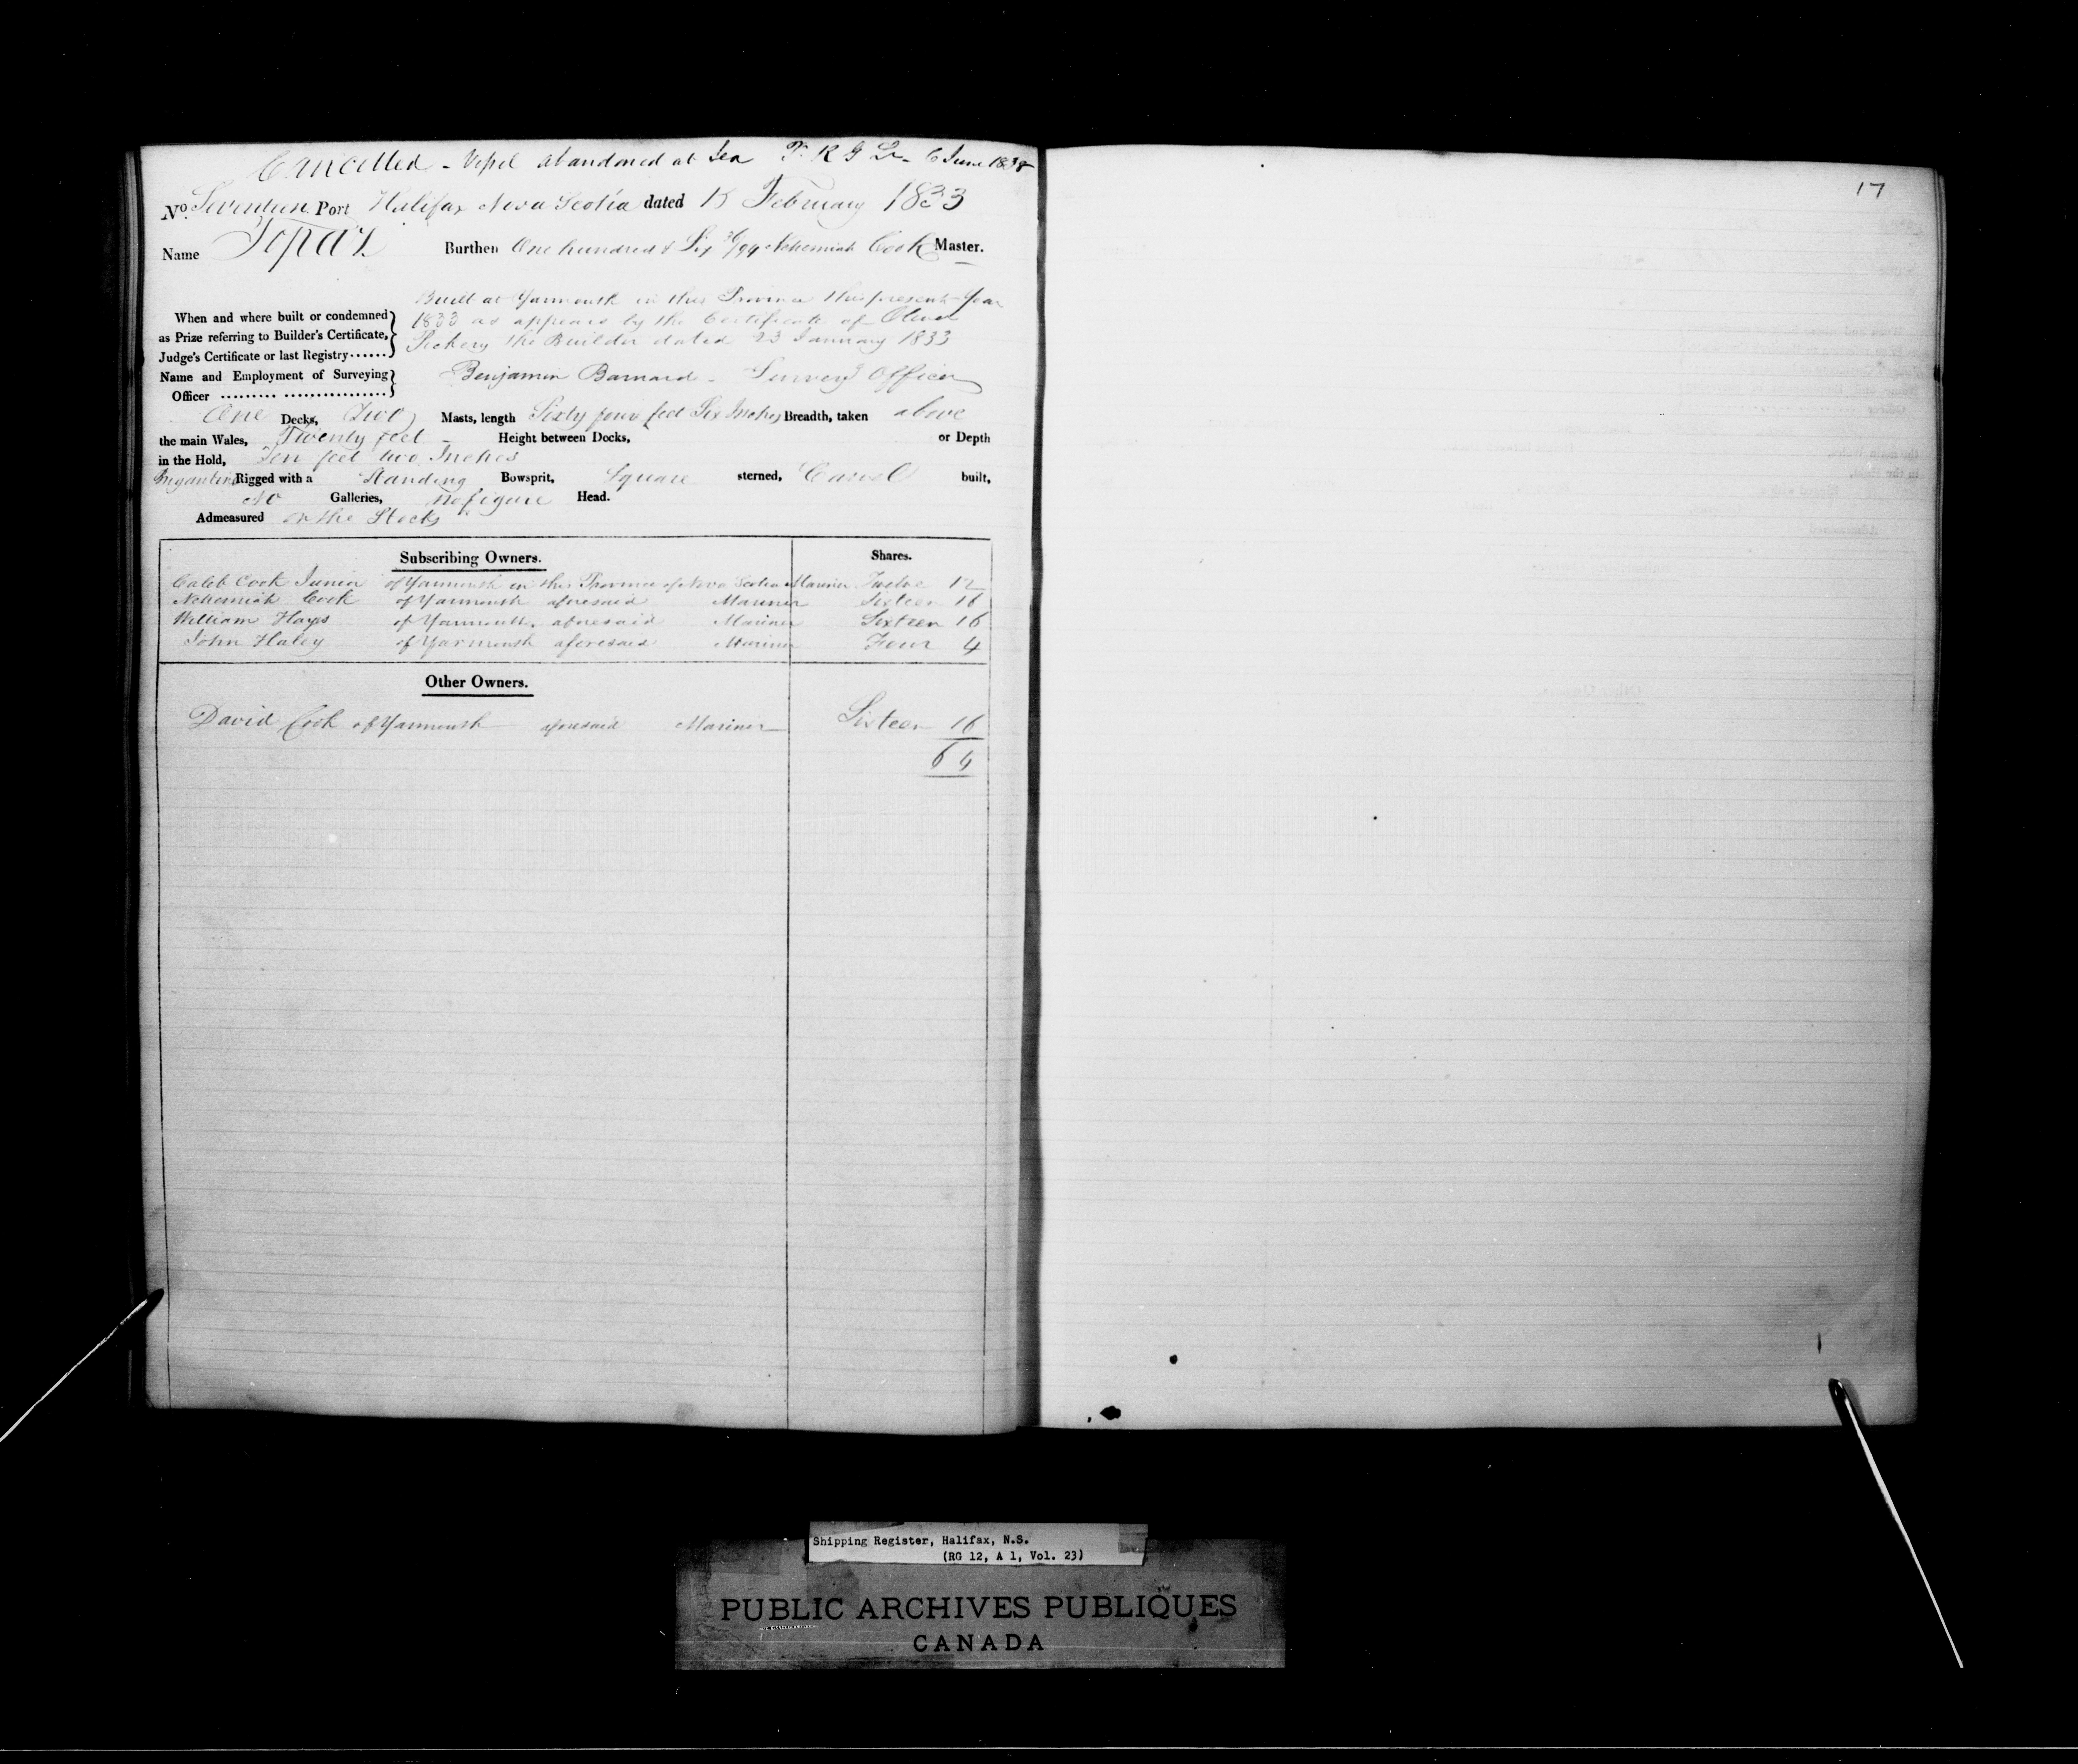 Cancelled - Vessel abandoned at Sea T. R G L. 6 June 1838
No. Seventeen Port Halifax Nova Scotia dated 15 February 1833
Name Topaz Burthen One hundred & Six 36/94 Nehemiah Cook Master.
Built at Yarmouth in this Province this present Year
When and where built or condemned 1833 as appears by the Certificate of Oliver
as Prize referring to Builder's Certificate, the Builder dated 23 January 1833
Judge's Certificate or last Registry......
Name and Employment of Surveying Benjamin Barnard - Surveyg Officer
Officer ......... ................
One Decks, Two Masts, length Sixty four feet Six Inches Breadth, taken above
the main Wales, Twenty feet - Height between Decks, or Depth
in the Hold, Ten feet two Inches
Brigantine Rigged with a Standing Bowsprit, Square sterned, Carvel built,
No Galleries, no figure Head.
Admeasured on the Stocks
Subscribing Owners. Shares.
Caleb Cook Junior of Yarmouth in the Province of Nova Scotia Mariner Twelve 12
Nehemiah Cook of Yarmouth aforesaid Mariner Sixteen 16
William Hays of Yarmouth, aforesaid Mariner Sixteen 16
John Haley of Yarmouth aforesaid Mariner Four 4
Other Owners.
David Cook of Yarmouth aforesaid Mariner Sixteen 16
64
17
Shipping Register, Halifax, N.S.
(RG 12, A 1, Vol. 23)
PUBLIC ARCHIVES PUBLIQUES
CANADA